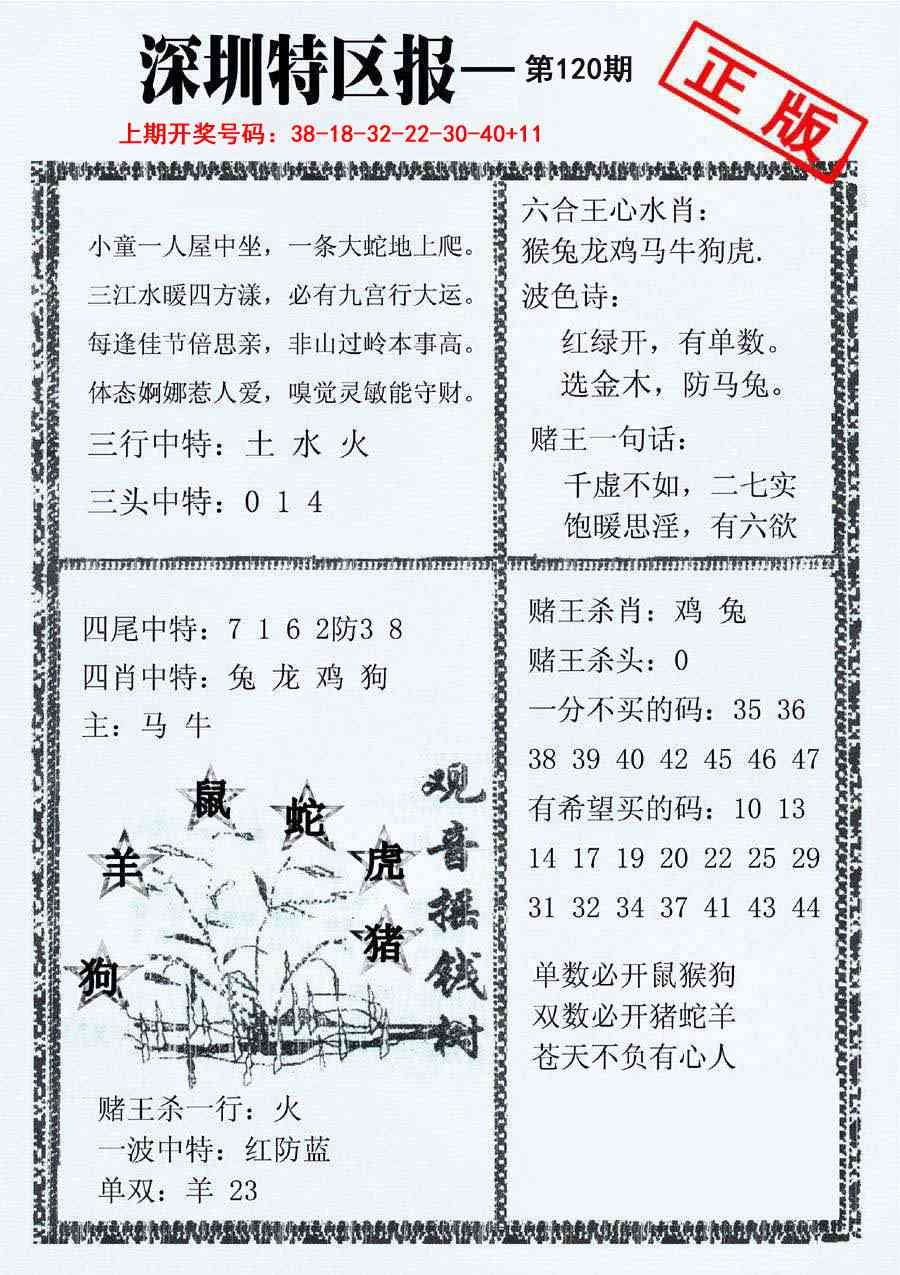 深圳特区报—第120期
正版
上期开奖号码：38-18-32-22-30-40+11
小童一人屋中坐，一条大蛇地上爬。
三江水暖四方漾，必有九宫行大运。
每逢佳节倍思亲，非山过岭本事高。
体态婀娜惹人爱，嗅觉灵敏能守财。
三行中特：土 水 火
三头中特：0 1 4
六合王心水肖：
猴兔龙鸡马牛狗虎.
波色诗：
红绿开，有单数。
选金木，防马兔。
赌王一句话：
千虚不如，二七实
饱暖思淫，有六欲
四尾中特：7 1 6 2防3 8
四肖中特：兔 龙 鸡 狗
主：马 牛
鼠
蛇
羊
虎
猪
狗
观音摇钱树
赌王杀一行：火
一波中特：红防蓝
单双：羊 23
赌王杀肖：鸡 兔
赌王杀头：0
一分不买的码：35 36
38 39 40 42 45 46 47
有希望买的码：10 13
14 17 19 20 22 25 29
31 32 34 37 41 43 44
单数必开鼠猴狗
双数必开猪蛇羊
苍天不负有心人